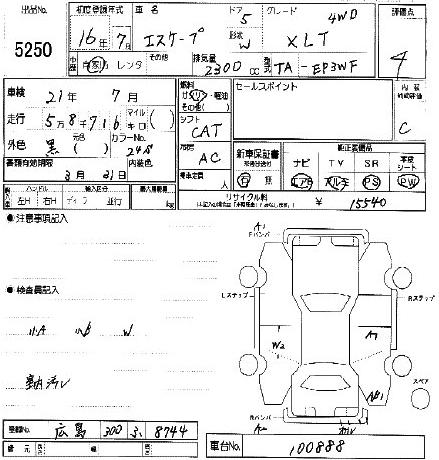 出品No. 5250
初度登録年式 16年 7月
車名 エスケープ
ドア 5 形状 W
グレード 4WD XLT
評価点 4
車歴 自家 レンタ その他
排気量 2300 cc
型式 TA-EP3WF
車検 21年 7月
燃料 ガソリン・軽油 その他( )
セールスポイント
内装 C
走行 5万8千716 マイル( ) キロ( )
シフト CAT
外色 黒( ) 元色 カラーNo.
冷房 AC
新車保証書 有 無
純正装備品
ナビ TV SR 本皮シート
エアB アルミ PS PW
書類有効期限 3月31日 内装色
乗車定員 人
輸入車 ハンドル 左H 右H 輸入区分 ディーラ 並行
リサイクル料 ¥ 15540
●注意事項記入
●検査員記入
A1 Fバンパ
Lステップ Rステップ
小A 小B W
W2 A1
室内汚レ
スペア
Rバンパ A2
登録No. 広島 300 ふ 8744
車台No. 100888